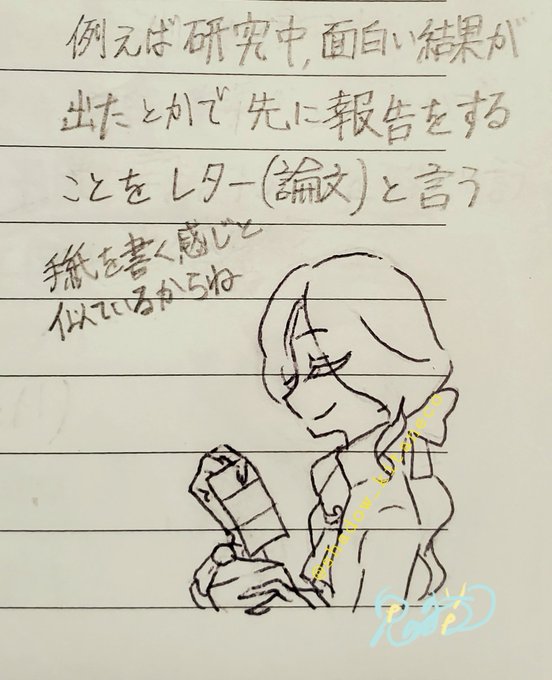 例えば研究中,面白い結果が
出たとかで先に報告をする
ことをレター(論文)と言う
手紙を書く感じと
似ているからね